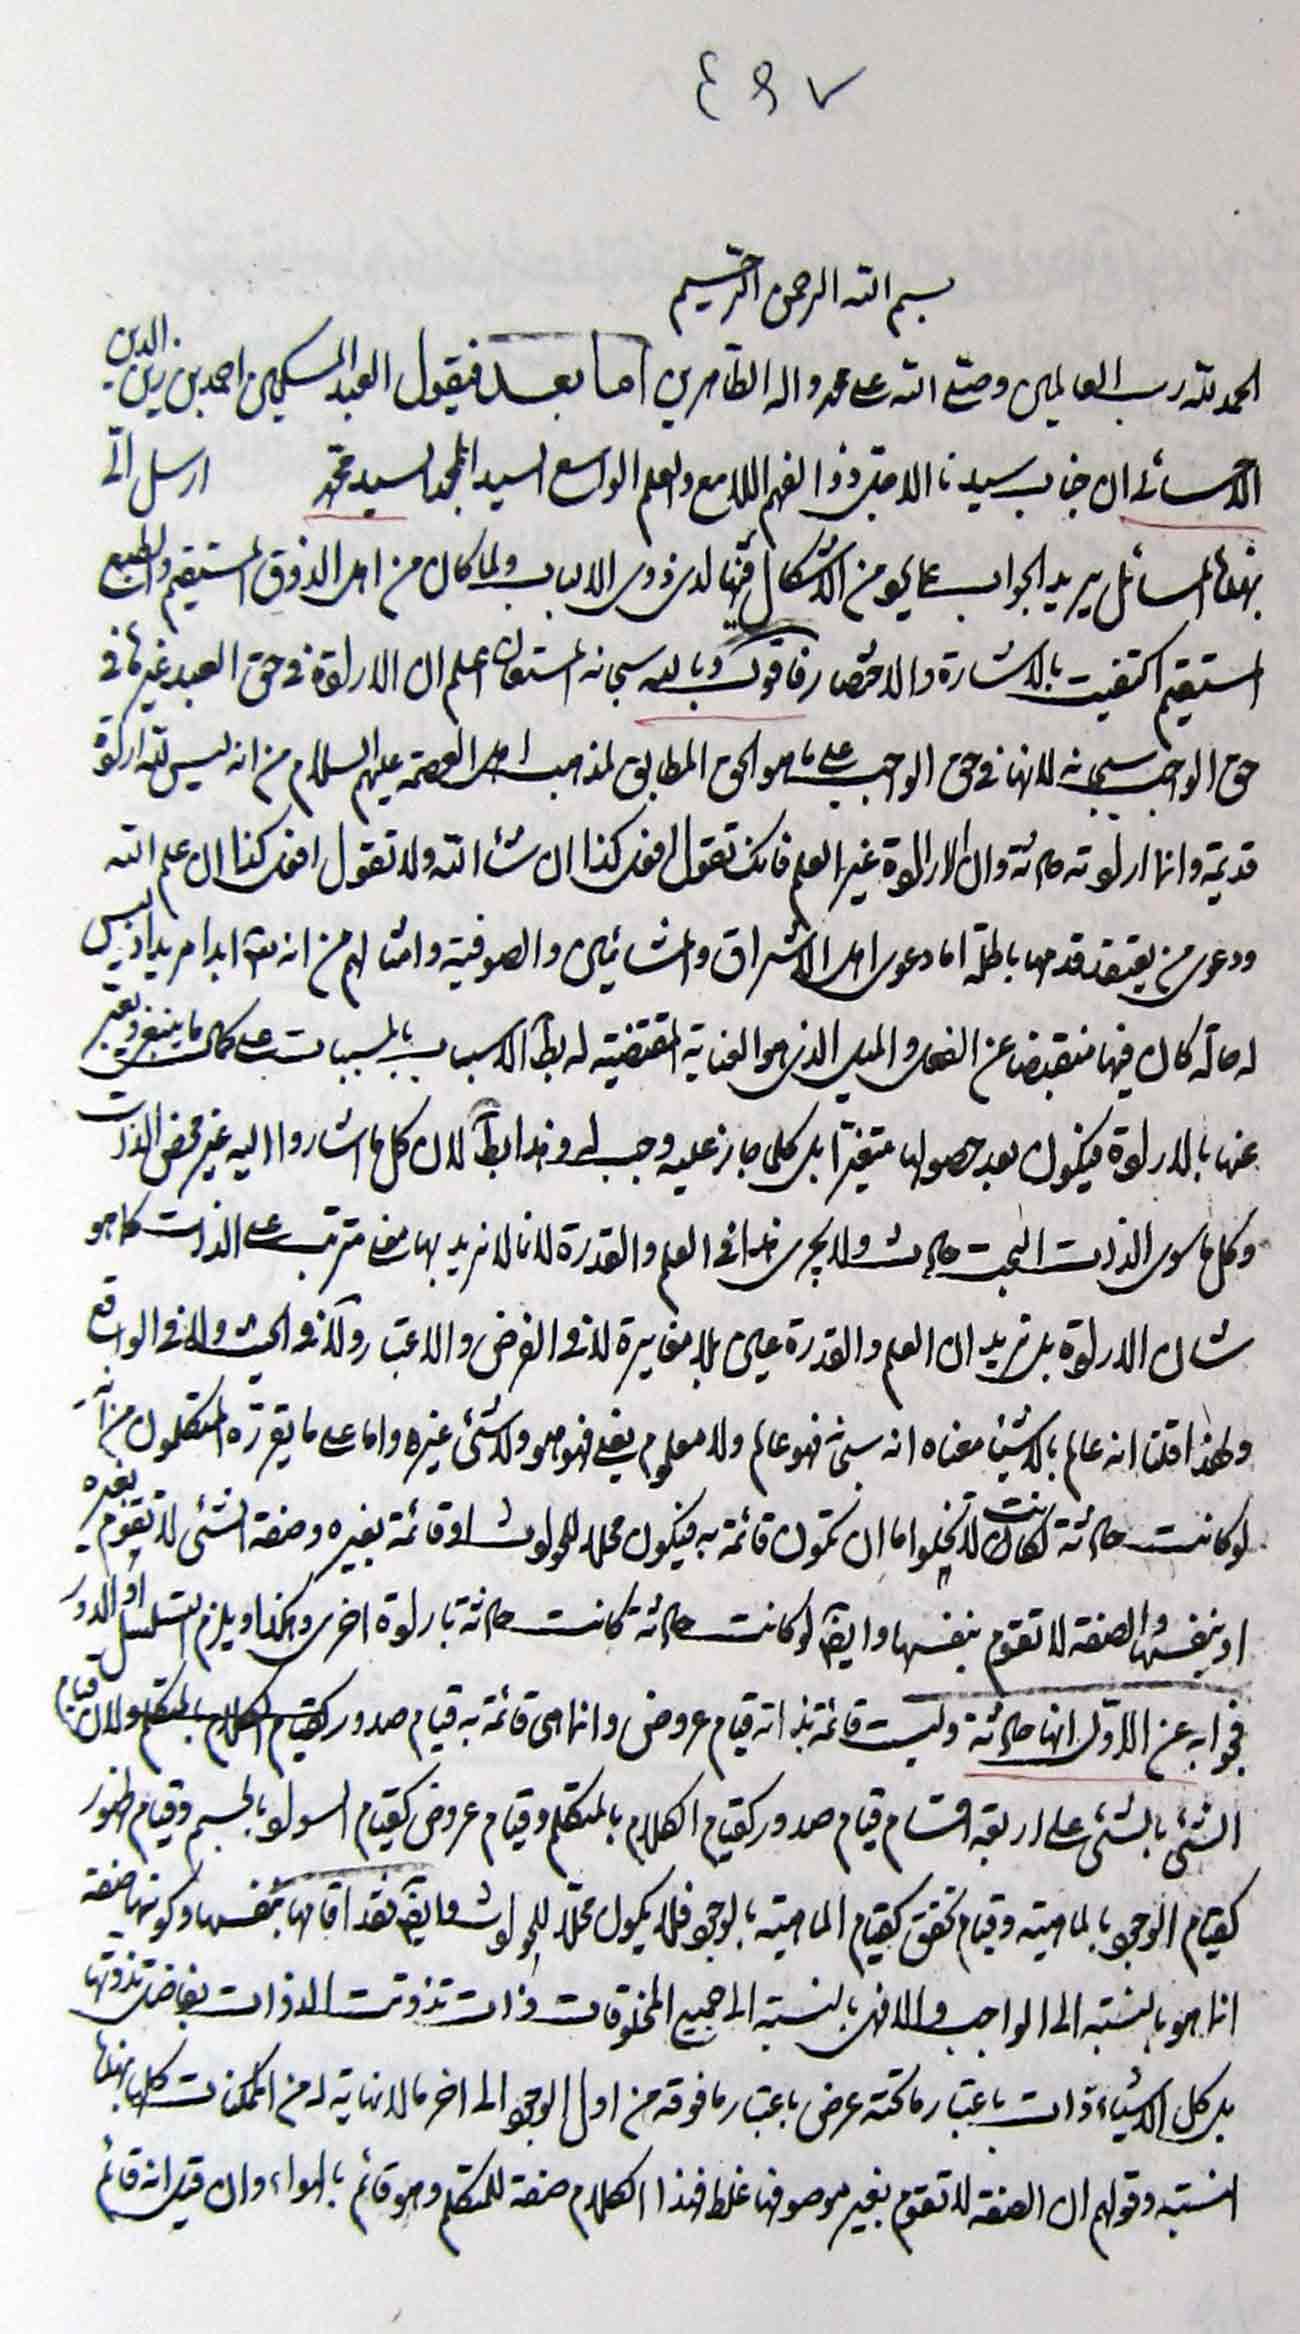 ٤٩٧
بسم الله الرحمن الرحيم
الحمد لله رب العالمين وصلى الله على محمد واله الطاهرين اما بعد فيقول العبد المسكين احمد بن زين الدين
الاحسائى ان جناب سيدنا الاجل ذو الفهم اللامع والعلم الواسع السيد الامجد السيد محمد ارسل الىّ
بهذه المسائل يريد الجواب عما يحوم من الاشكال فيها لدى ذوى الالباب ولما كان من اهل الذوق المستقيم والطبع
المستقيم اكتفيت بالاشارة والاختصار فاقول وبالله سبحانه المستعان اعلم ان الارادة فى حق العبد غيرها فى
حق الواجب سبحانه لانها فى حق الواجب على ما هو الحق المطابق لمذهب اهل العصمة عليهم السلام من انه ليس لله ارادة
قديمة وانما ارادته حادثة وان الارادة غير العلم فانك تقول افعل كذا ان شاء الله ولا تقول افعل كذا ان علم الله
ودعوى من يعتقد قدمها باطلة اما دعوى اهل الاشراق والمشائين والصوفية وامثالهم من انه تعالى ابدا مريد اذ ليس
له حالة كان فيها منقبضا عن الفعل والميل الذى هو العناية المقتضية لربط الاسباب بالمسببات على كمال ما ينبغى ويعبر
عنها بالارادة فيكون بعد حصولها متغيرا بل كلما جاز عليه وجب له وهذا باطل لان كل ما اشاروا اليه غير محض الذات
وكل ما سوى الذات البحت حادث ولا يجرى هذا فى العلم والقدرة لانا لا نريد بها معنى مترتب على الذات كما هو
شان الارادة بل نريد ان العلم والقدرة عين بلا مغايرة لا فى الفرض والاعتبار ولا فى الحيث ولا فى الواقع
ولهذا قلنا انه عالم بالاشياء معناه انه سبحانه فهو عالم ولا معلوم يعنى فهو هو ولا شئ غيره واما على ما يقرره المتكلمون من انه
لو كانت حادثة لكانت لا تخلوا اما ان تكون قائمة به فيكون محلا للحوادث او قائمة بغيره وصفة الشئ لا تقوم بغيره
او بنفسها والصفة لا تقوم بنفسها وايضا لو كانت حادثة كانت حادثة بارادة اخرى وهكذا ويلزم التسلسل او الدور
فجوابه عن الاول انها حادثة وليست قائمة بذاته قيام عروض وانما هى قائمة به قيام صدور كقيام الكلام بالمتكلم ولان قيام
الشئ بالشئ على اربعة اقسام قيام صدور كقيام الكلام بالمتكلم وقيام عروض كقيام السواد بالجسم وقيام ظهور
كقيام الوجود بالماهية وقيام تحقق كقيام الماهية بالوجود فلا يكون محلا للحوادث وايضا فقد اقامها بنفسها وكونها صفة
انما هو بالنسبة الى الواجب والا فهى بالنسبة الى جميع المخلوقات ذات تذوتت الذوات بفاضل تذوتها
بل كل الاشياء ذات باعتبار ما تحته عرض باعتبار ما فوقه من اول الوجود الى اخر ما لا نهاية له من الممكنات كلها بهذه
النسبة وقولهم ان الصفة لا تقوم بغير موصوفها غلط فهذا الكلام صفة للمتكلم وهو قائم بالهواء وان قيل انه قائم